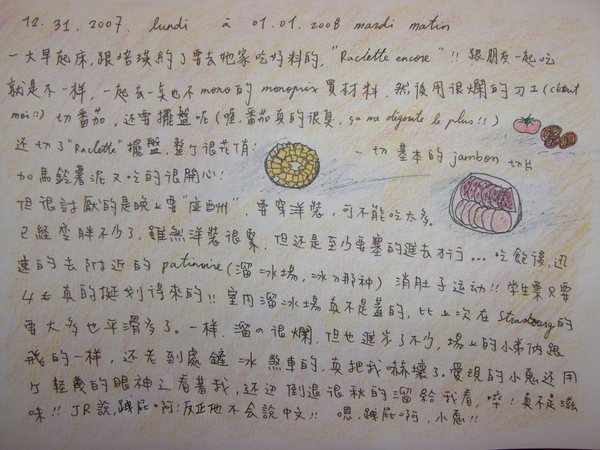 12.31.2007. lundi à 01.01.2008 mardi matin
一大早起床,跟培瑛約了要去她家吃好料的,"Raclette encore"!! 跟朋友一起吃
就是不一樣,一起去一點也不mono的monoprix買材料,然後用很爛的刀工(c'était
moi!!) 切番茄,還要擺盤呢(喔,番茄真的很臭, ça me dégoute le plus!!)
還切了"Raclette"擺盤,整個很花俏!
一切基本的jambon切片
加馬鈴薯泥又吃的很開心!
但很討厭的是晚上要" ",要穿洋裝,可不能吃太多.
已經變胖不少了,雖然洋裝很緊,但還是至少要塞的進去才行...吃飽後,迅
速的去附近的patinoire(溜冰場,冰刀那種)消肚子運動!!學生票只要
4€真的挺划得來的!!室內溜冰場真不是蓋的,比上次在Strasbourg的
要大多也平滑多了。一樣,溜的很爛,但也進步了不少,場上的小弟倆跟
飛的一樣,還老到處鏟冰煞車的,真把我嚇壞了.愛現的小鬼還用
ㄎ輕蔑的眼神ㄙ看著我,還邊倒退很秋的溜給我看,啐!真不是滋
味!! JR說,跩屁啊!反正他不會說中文!! 嗯,跩屁啊,小鬼!!